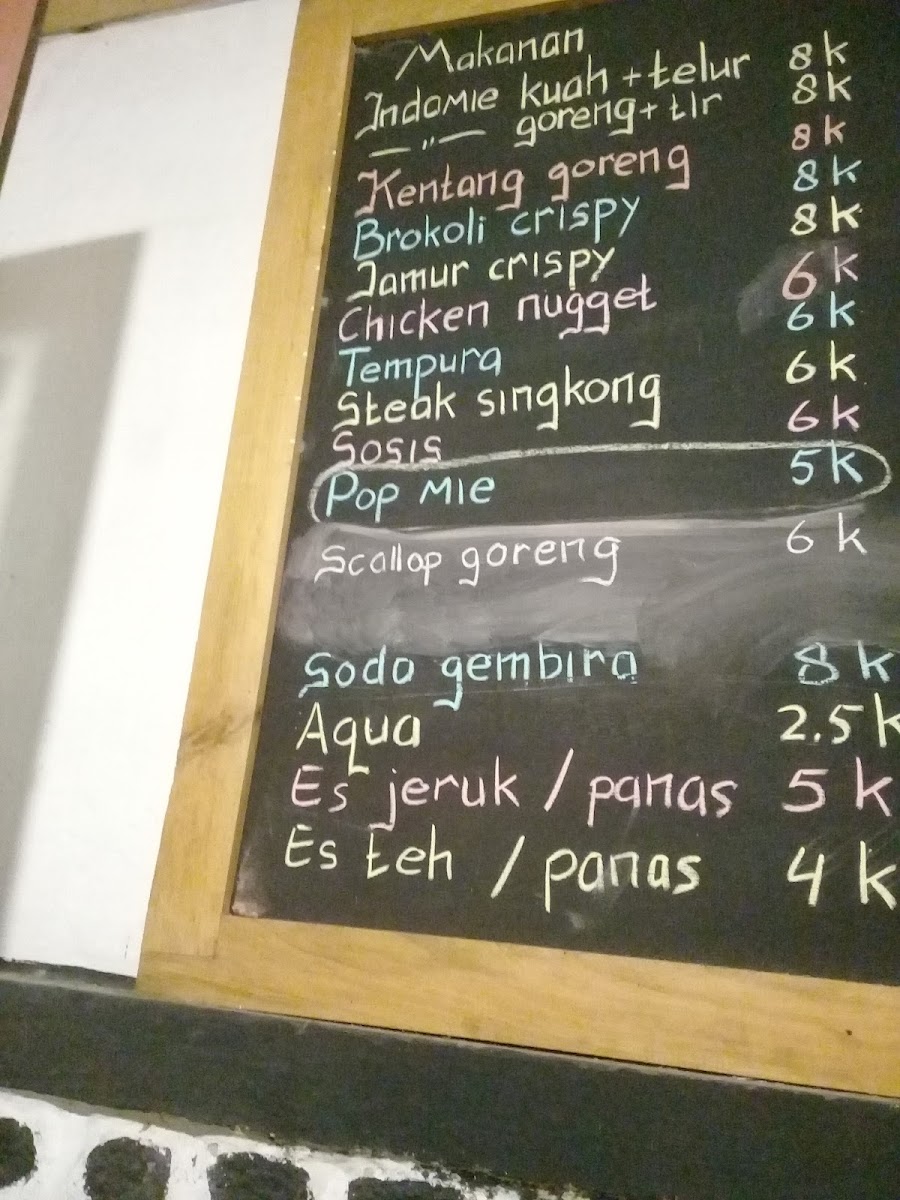 Makanan
Indomie kuah + telur 8k
— „ — goreng + tlr 8k
Kentang goreng 8k
Brokoli crispy 8k
Jamur crispy 8k
Chicken nugget 6k
Tempura 6k
Steak singkong 6k
Sosis 6k
Pop Mie 5k
Scallop goreng 6k
Soda gembira 8k
Aqua 2.5k
Es jeruk / panas 5k
Es teh / panas 4k